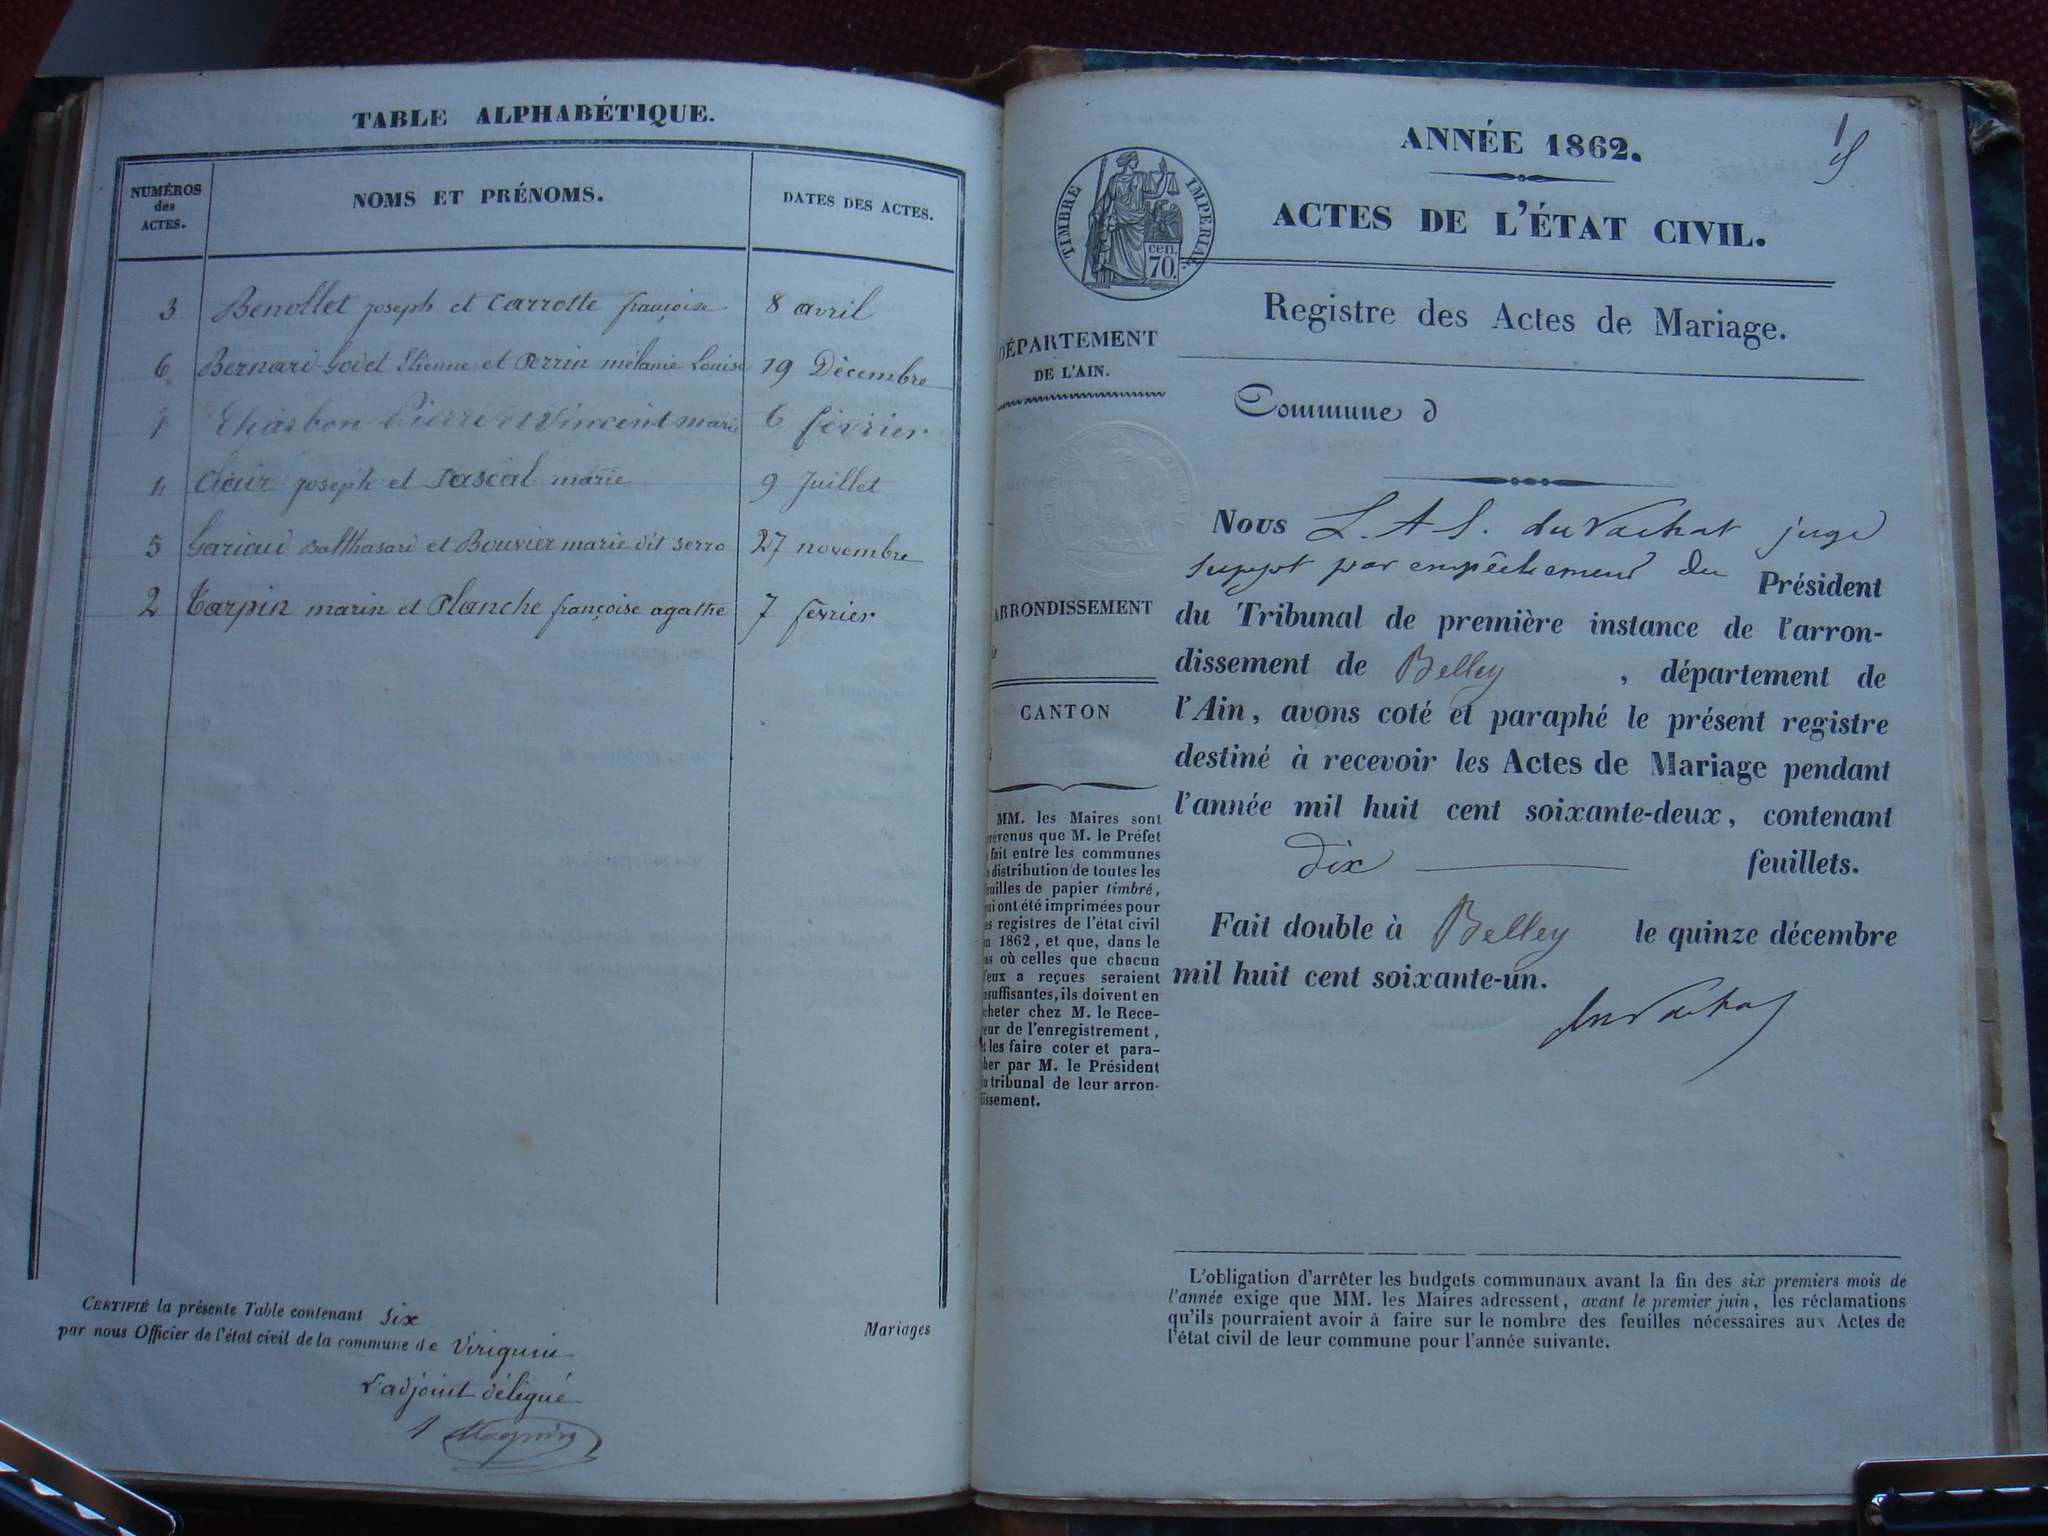 TABLE ALPHABÉTIQUE.
NUMÉROS des ACTES.
NOMS ET PRÉNOMS.
DATES DES ACTES.
3 Benollet joseph et Carrotte françoise 8 avril
6 Bernard-Godet Etienne et Perrin mélanie Louise 19 Décembre
1 Charbon Pierre et Vincent marie 6 février
4 Clair joseph et Pascal marie 9 Juillet
5 Garioud Balthasard et Bouvier marie dit serro 27 novembre
2 Tarpin marin et Planche françoise agathe 7 fevrier
CERTIFIÉ la présente Table contenant six Mariages
par nous Officier de l'état civil de la commune de Virignin
L'adjoint délégué
ANNÉE 1862.
1
ACTES DE L'ÉTAT CIVIL.
TIMBRE IMPERIAL.
cen.
70.
Registre des Actes de Mariage.
DÉPARTEMENT
DE L'AIN.
Commune d
ARRONDISSEMENT
CANTON
MM. les Maires sont
prévenus que M. le Préfet
fait entre les communes
distribution de toutes les
feuilles de papier timbré,
qui ont été imprimées pour
es registres de l'état civil
1862, et que, dans le
as où celles que chacun
d'eux a reçues seraient
insuffisantes, ils doivent en
acheter chez M. le Rece-
eur de l'enregistrement,
les faire coter et para-
pher par M. le Président
du tribunal de leur arron-
dissement.
Nous L. A. S. du Vachat juge
suppt par empêchement du Président
du Tribunal de première instance de l'arron-
dissement de Belley , département de
l'Ain, avons coté et paraphé le présent registre
destiné à recevoir les Actes de Mariage pendant
l'année mil huit cent soixante-deux, contenant
dix feuillets.
Fait double à Belley le quinze décembre
mil huit cent soixante-un.
du Vachat
L'obligation d'arrêter les budgets communaux avant la fin des six premiers mois de
l'année exige que MM. les Maires adressent, avant le premier juin, les réclamations
qu'ils pourraient avoir à faire sur le nombre des feuilles nécessaires aux Actes de
l'état civil de leur commune pour l'année suivante.